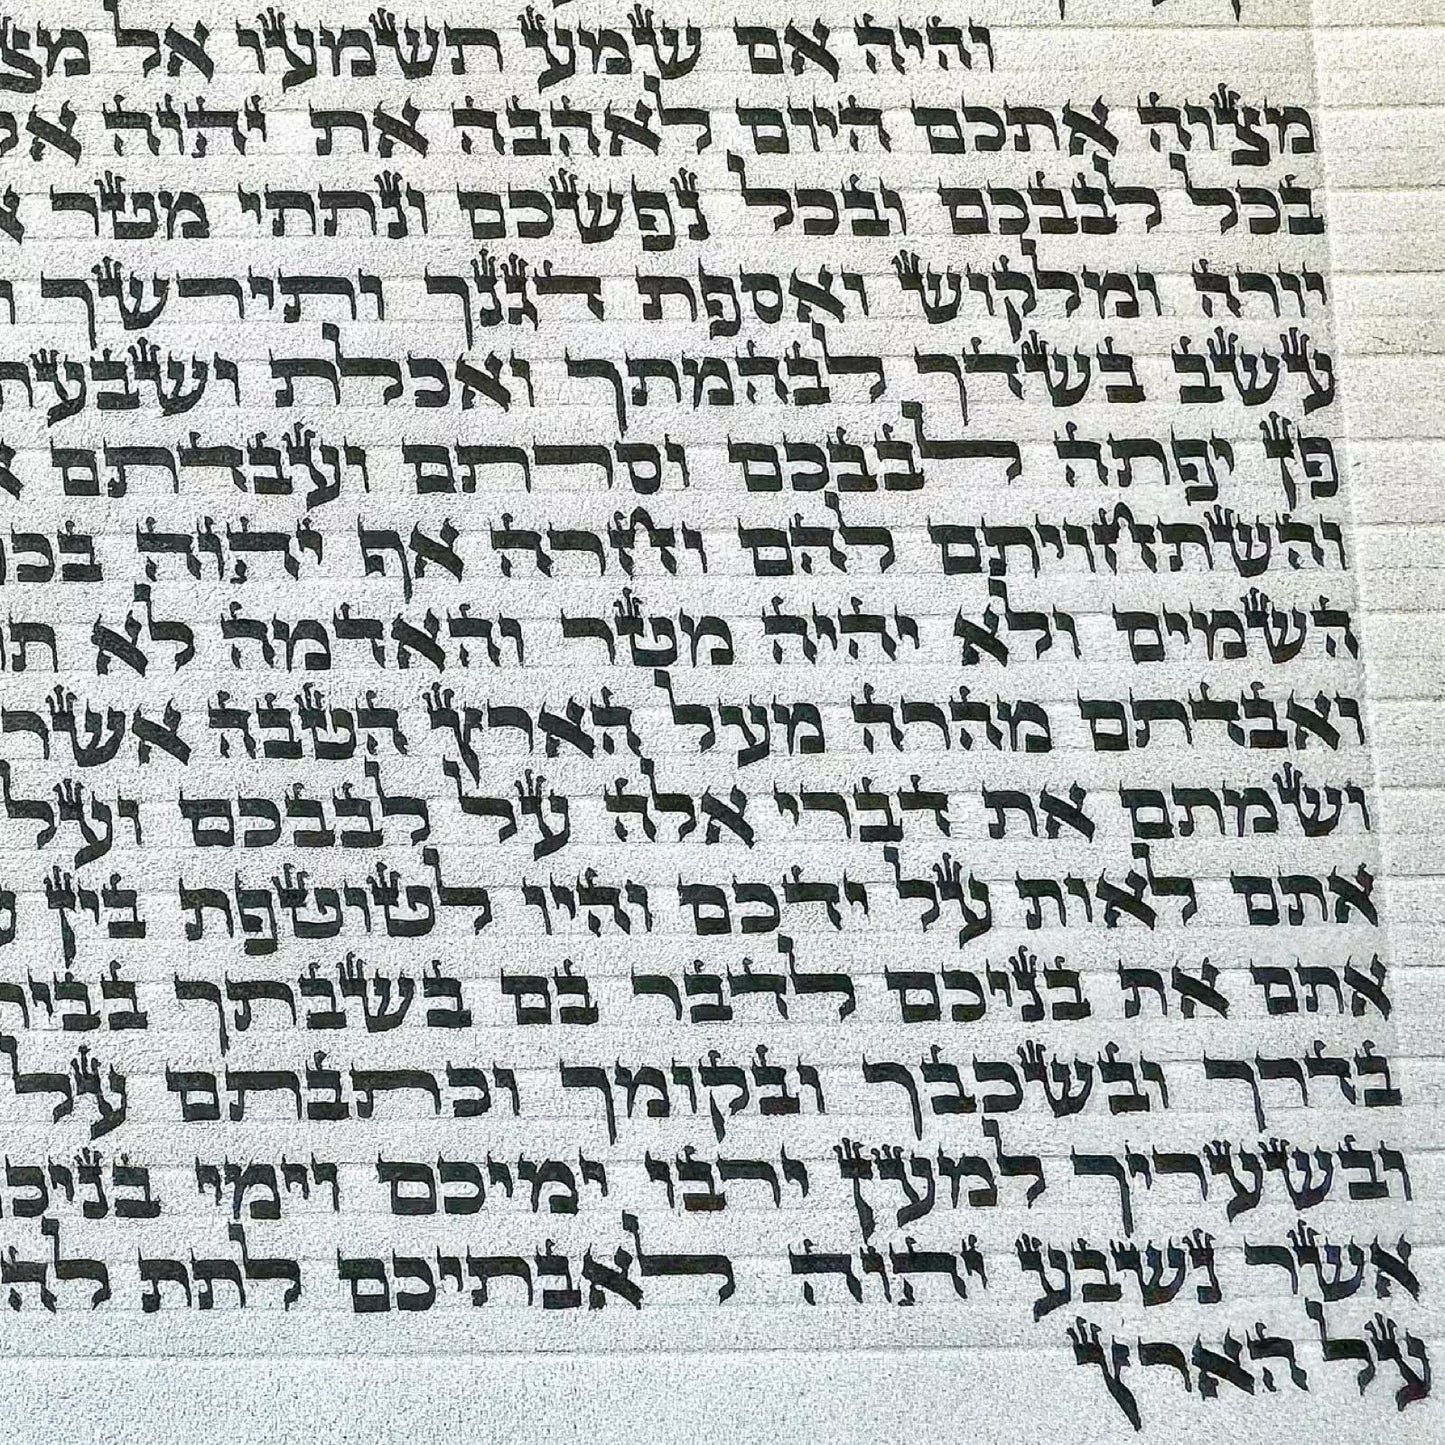 והיה אם שמע תשמעו אל
מצוה אתכם היום לאהבה את יהוה
בכל לבבכם ובכל נפשכם ונתתי מטר
יורה ומלקוש ואספת דגנך ותירשך
עשב בשדך לבהמתך ואכלת
פן יפתה לבבכם וסרתם ועבדתם
והשתחויתם להם וחרה אף יהוה
השמים ולא יהיה מטר והאדמה לא
ואבדתם מהרה מעל הארץ הטבה אשר
ושמתם את דברי אלה על לבבכם ועל
אתם לאות על ידכם והיו לטוטפת בין
אתם את בניכם לדבר בם בשבתך
בדרך ובשכבך ובקומך וכתבתם על
ובשעריך למען ירבו ימיכם וימי
אשר נשבע יהוה לאבתיכם לתת
על הארץ